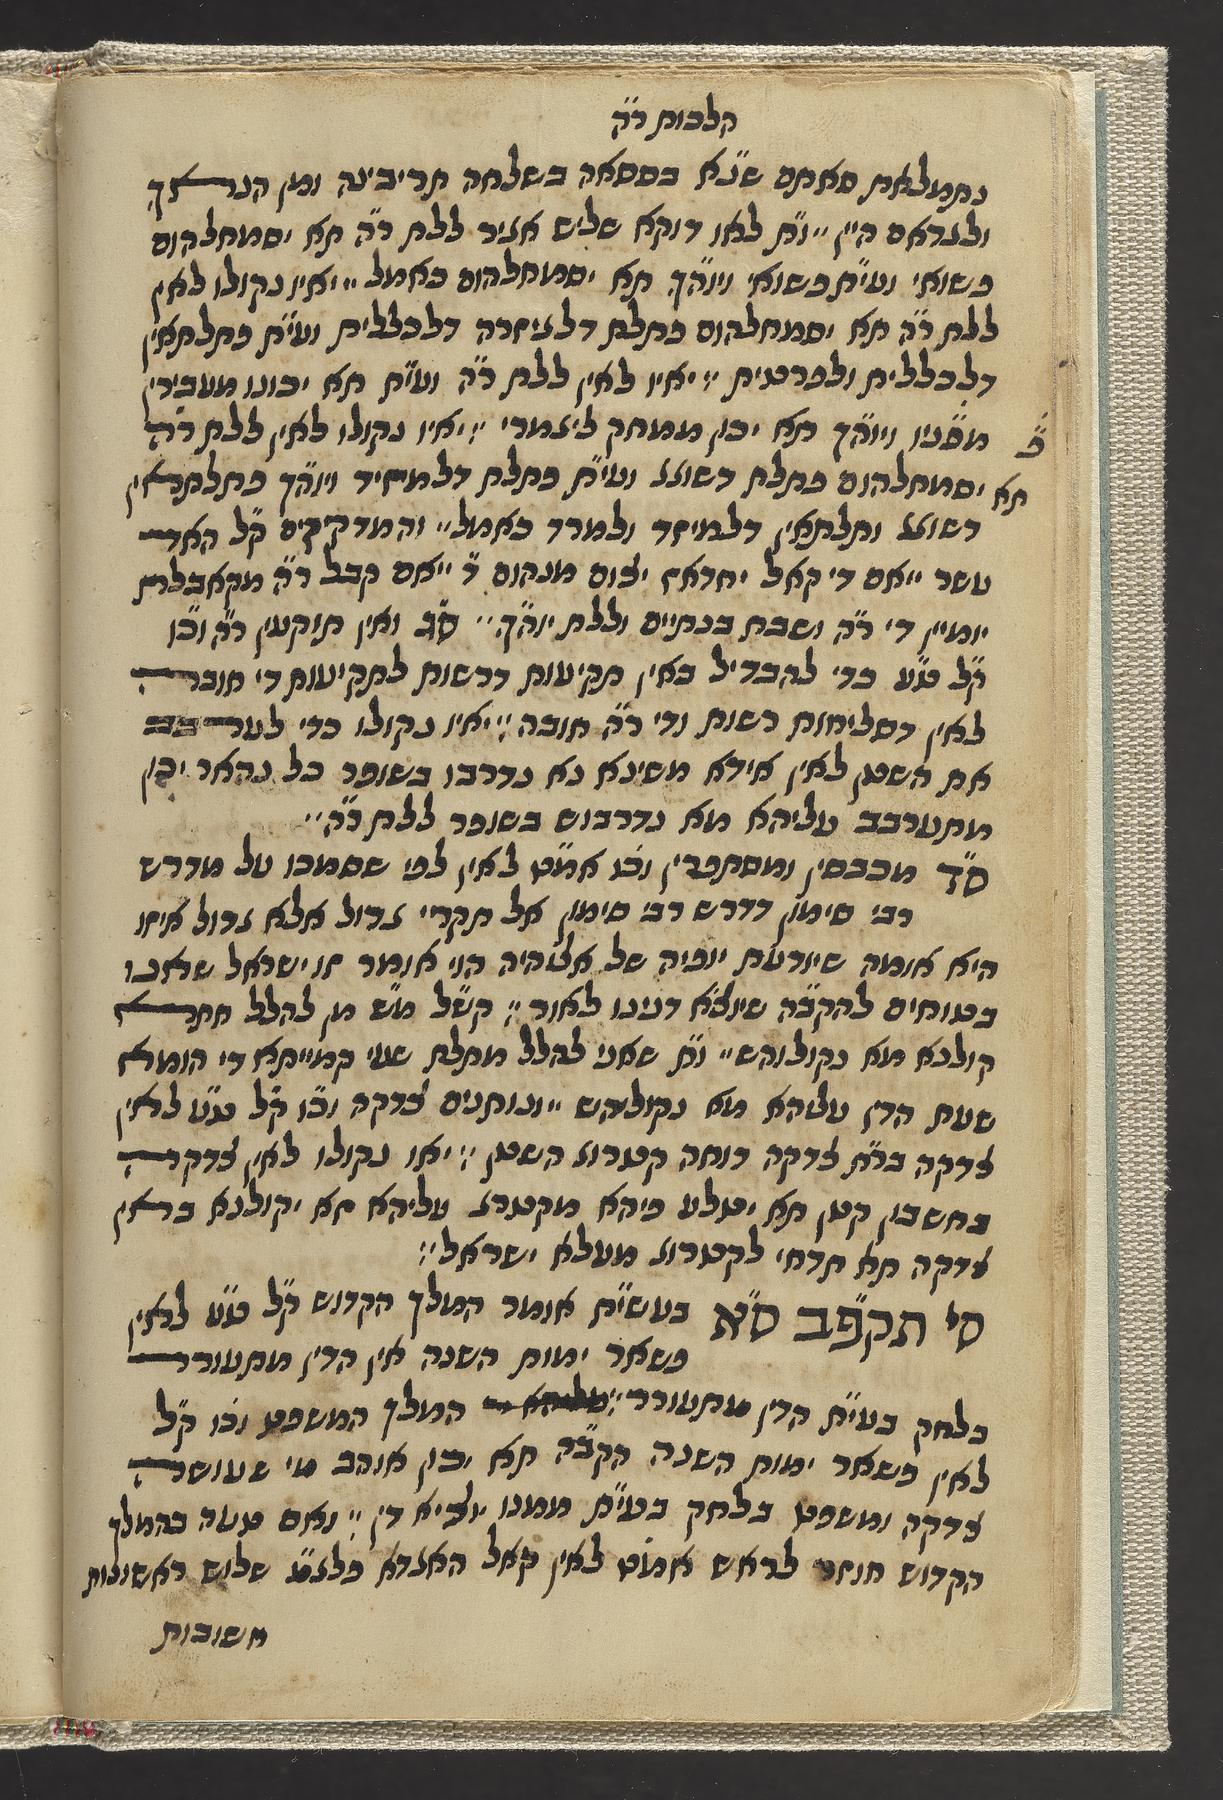 הלכות ר״ה
נתמלאת סאתם ש״נא בססאה בשלחה תריבינה ומן הנראך
ולגדאם היין ״ות לאו דוקא שליש אגיר ללת ר״ה תא יסמחלהום
בשואי וע״ת בשואי ויוה״ך תא יסמחלהום כאמל ״ יאיו נקולו לאין
ללת ר״ה תא יסמחלהום בתלת דלגזירה דלכללית וע״ת בתלתאין
דלכללית ולפרטית ״ יאיו לאין ללת ר״ה וע״ת תא יכונו מעבירין
מפניו ויוה״ך תא יכון ממחק ליגמרי ״ יאיו נקולו לאין ללת ר״ה
פ״
תא יסמחלהום בתלת דשוגג וע״ת בתלת דלמזיד ויוה״ך בתלתאין
דשוגג ותלתאין דלמיזד ולמרד כאמל״ והמדקדקים ק״ל האד
עשר ייאם די קאל יחדאז יצום מנהום ד׳ ייאם קבל ר״ה מקאבלת
יומיין די ר״ה ושבת בנתיים וללת יוה״ך ״ ס״ג ואין תוקעין ר״ה וכ״ו
ק״ל ט״ע כדי להבדיל באין תקיעות דרשות לתקיעות די חובה
לאין דסליחות רשות ודי ר״ה חובה ״ יאיו נקולו כדי לערבב
את השטן לאין אידא משינא נא נדרבו בשופר כל נהאר יכון
מתערבב עליהא מא נדרבוש בשופר ללת ר״ה ״
ס״ד מכבסין ומסתפרין וכ׳ו אמ״ט לאין לפי שסמכו על מדרש
רבי סימון דדרש רבי סימון אל תקרי גדול אלא גדול איזו
היא אומה שיודעת יופיה של אלוהיה הוי אומר זו ישראל שאנו
בטוחים להקב״ה שיוציא דנינו לאור ״ קש״ל מ״ש מן להלל חתא
קולנא מא נקולוהש״ ות שאני להלל מתלת שעי קמייתא די הומא
שעת הדן עליהא מא נקולוהש ״ ונותנים צדקה וכ״ו ק״ל ט״ע לאין
צדקה בר״ת צדקה דוחה קטרוג השטן ״ יאו נקולו לאין צדקה
בחשבון קטן תא יטלע פיהא מקטרג עליהא תא יקולנא באין
צדקה תא תדחי לקטרוג מעלא ישראל ״
סי׳ תקפ״ב ס״א בעש״ת אומר המלך הקדוש ק״ל ט״ע לאין
פשאר ימות השנה אין הדין מתעורר
בלחק בע״ת הדין מתעורר ״ המלך המשפט וכ׳ו ק״ל
לאין פשאר ימות השנה הקב״ה תא יכון אוהב מי שעושה
צדקה ומשפט בלחק בע״ת ממנו יוציא דין ״ ואם טעה בהמלך
הקדוש חוזר לראש אמ״ט לאין קאל האגדא פלגמ׳ שלוש ראשונות
חשובות